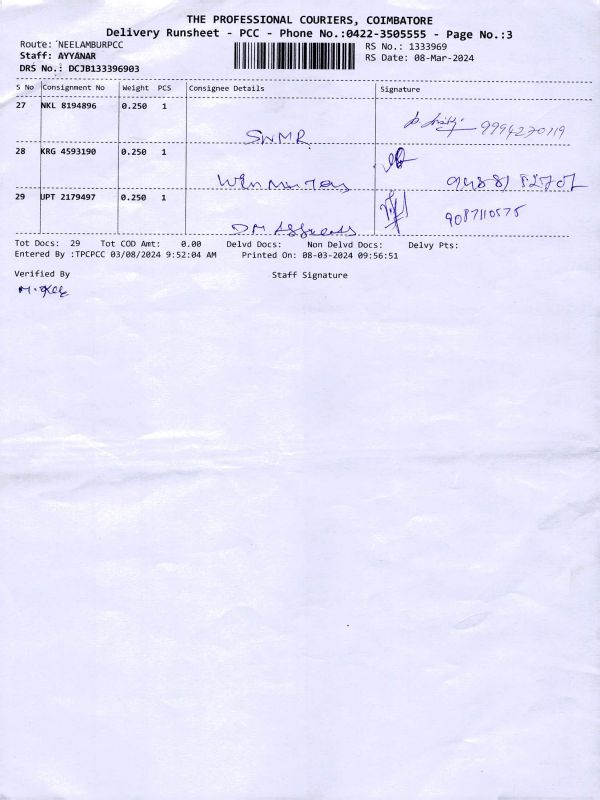 THE PROFESSIONAL COURIERS, COIMBATORE
Delivery Runsheet - PCC - Phone No.:0422-3505555 - Page No.:3
Route: NEELAMBURPCC
RS No.: 1333969
Staff: AYYANAR
RS Date: 08-Mar-2024
DRS No.: DCJB133396903
S No Consignment No Weight PCS Consignee Details Signature
27 NKL 8194896 0.250 1 SWMR 9994270119
28 KRG 4593190 0.250 1
29 UPT 2179497 0.250 1 DM 9087110575
Tot Docs: 29 Tot COD Amt: 0.00 Delvd Docs: Non Delvd Docs: Delvy Pts:
Entered By :TPCPCC 03/08/2024 9:52:04 AM Printed On: 08-03-2024 09:56:51
Verified By Staff Signature